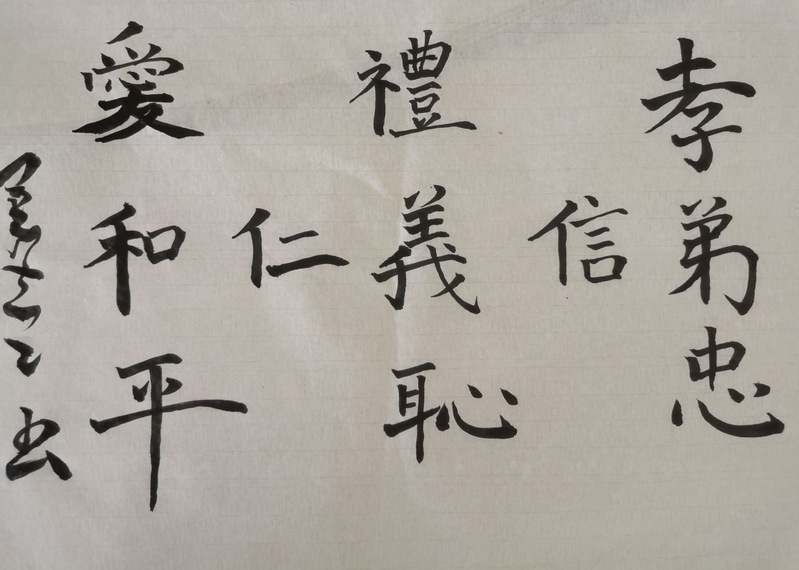 孝弟忠
信
禮義恥
仁
愛和平
书